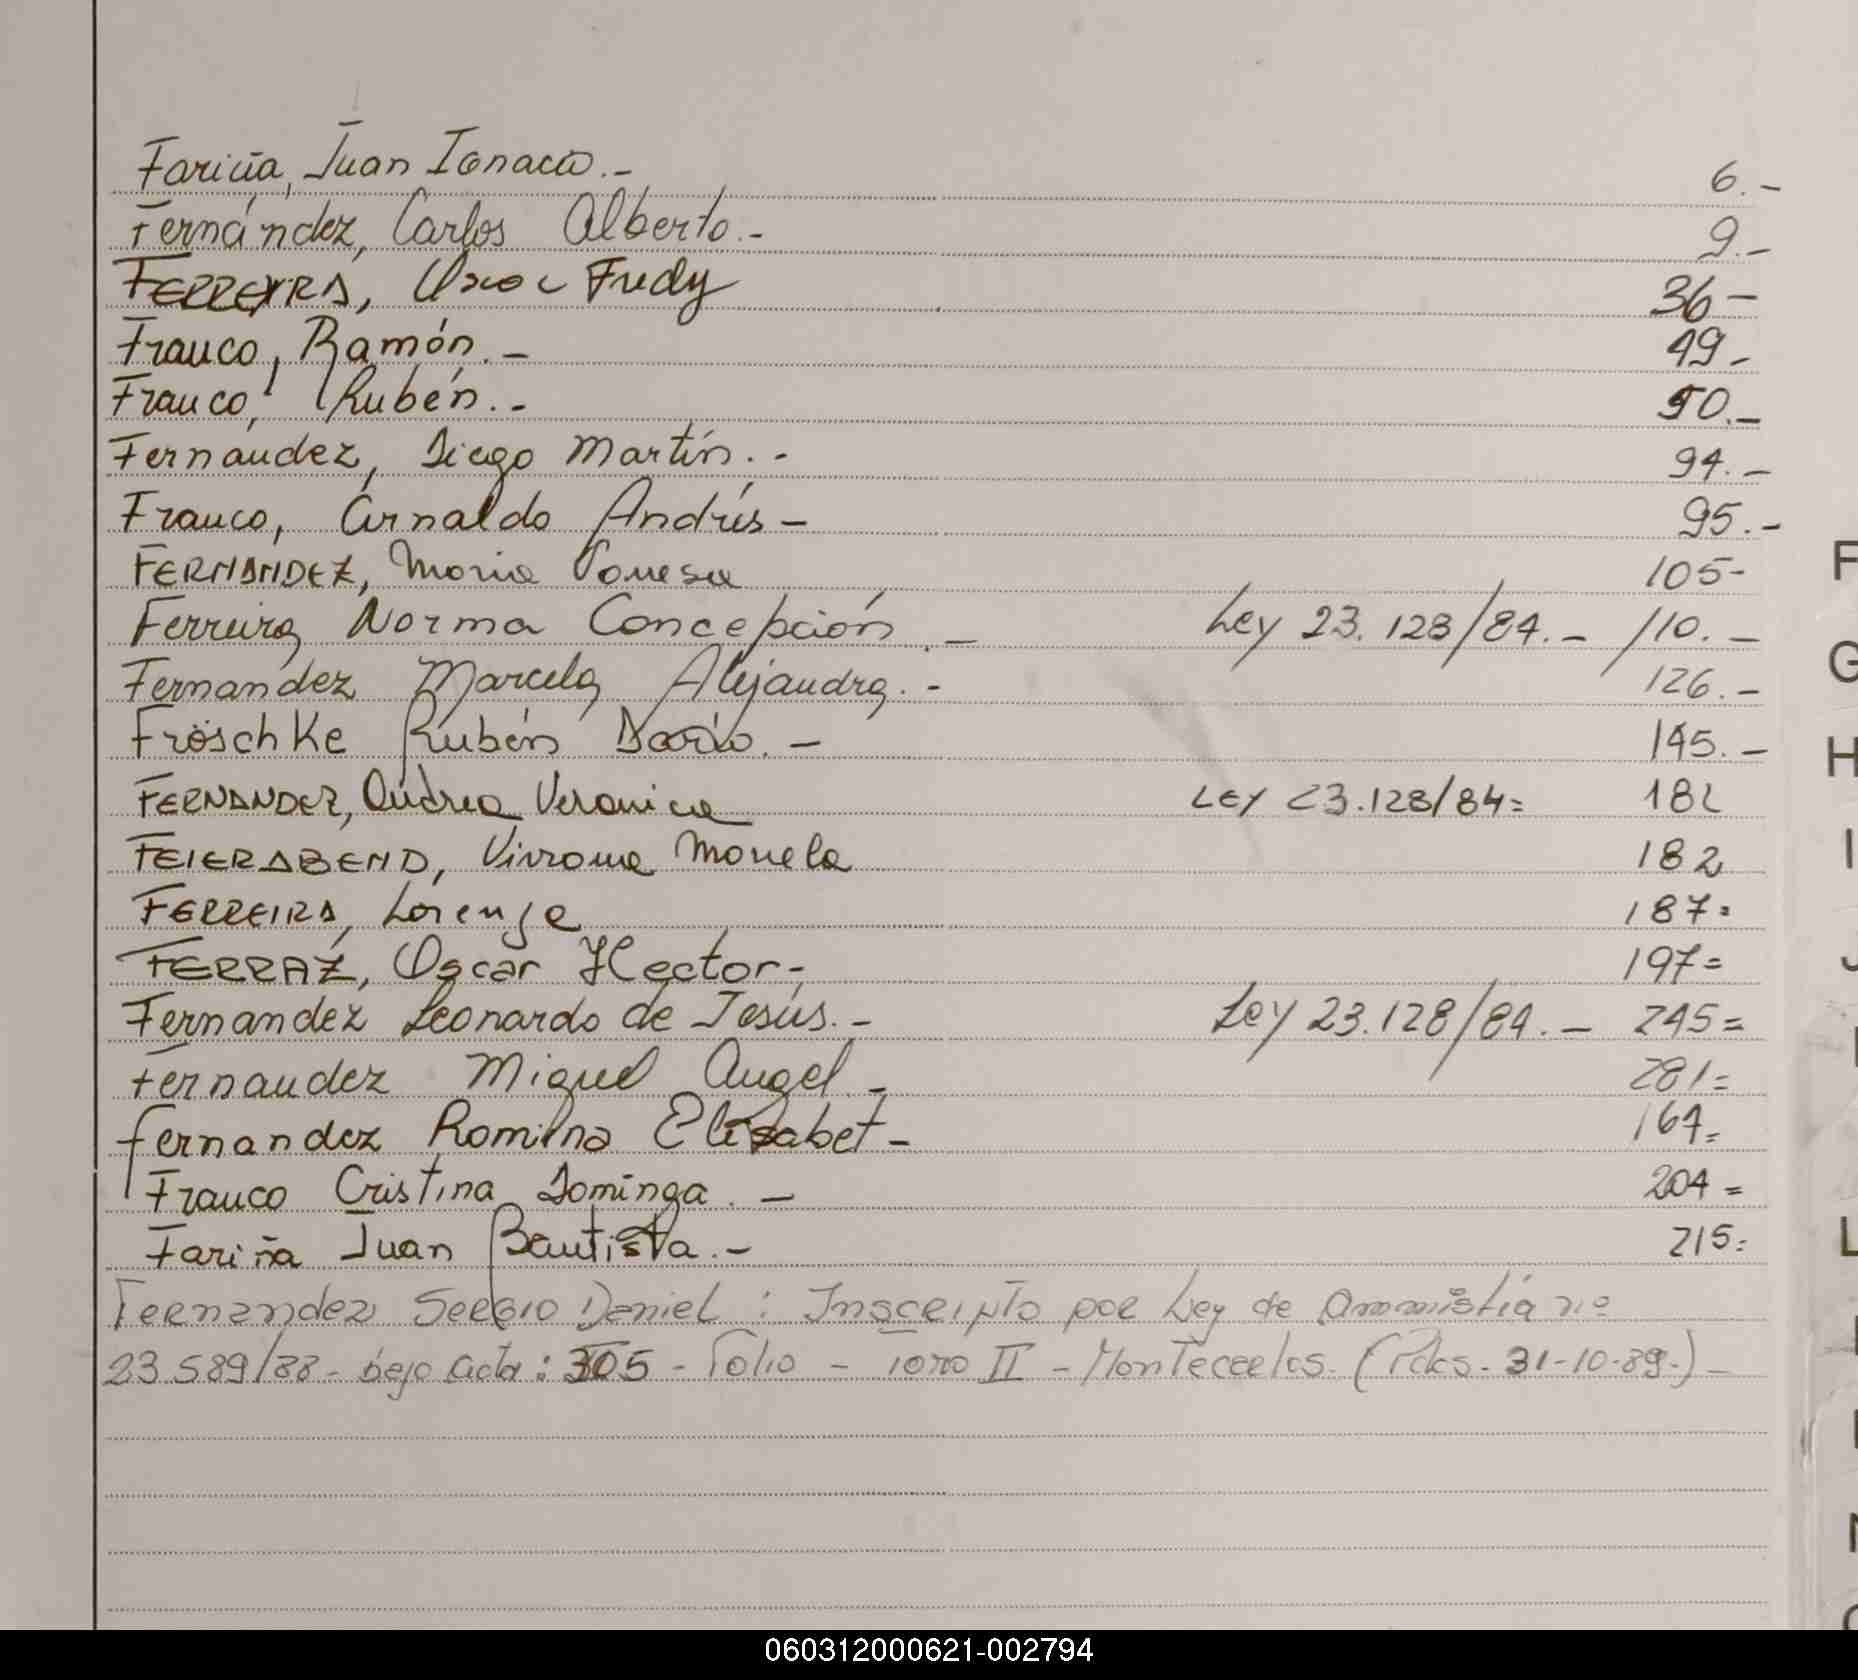 Fariña, Juan Ignacio.- 6.-
Fernández, Carlos Alberto.- 9.-
FERREYRA, Oscar Fredy 36-
Franco, Ramón.- 49-
Franco, Rubén.- 50.-
Fernandez, Diego Martín.- 94.-
Franco, Arnaldo Andrés- 95.-
FERNANDEZ, Maria Vanesa 105-
Ferreira Norma Concepción.- Ley 23.128/84.- 110.-
Fernandez Marcela Alejandra.- 126.-
Fröschke Rubén Darío.- 145.-
FERNANDEZ, Andrea Veronica LEY 23.128/84= 182
FEIERABEND, Viviana Mariela 182
FERREIRA, Lorenza 187=
FERRAZ, Oscar Hector- 197=
Fernandez Leonardo de Jesús.- Ley 23.128/84.- 245=
Fernandez Miguel Angel- 281=
Fernandez Romina Elisabet- 164=
Franco Cristina Dominga.- 204=
Fariña Juan Bautista.- 215=
Fernandez Sergio Daniel: Inscripto por Ley de Ammistia nº
23.589/88- bajo acta: 305- Folio - Tomo II - Montecarlos. (Pdas. 31-10-89.)-
F
G
H
I
J
L
N
060312000621-002794